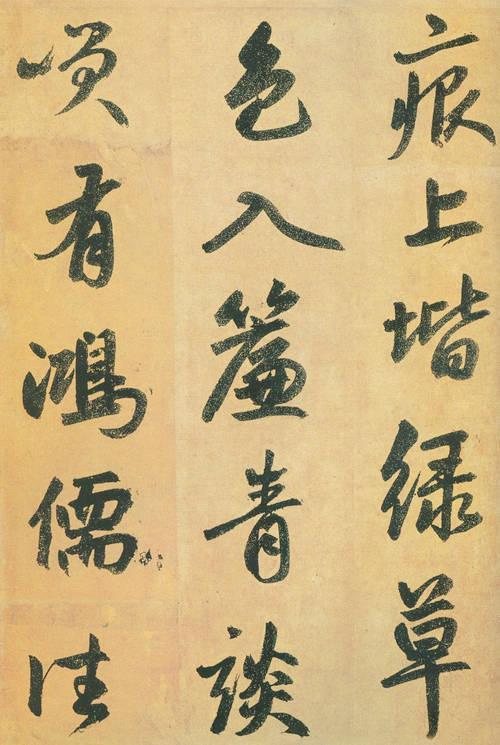 痕上堦绿草
色入簾青談
唉有鴻儒往